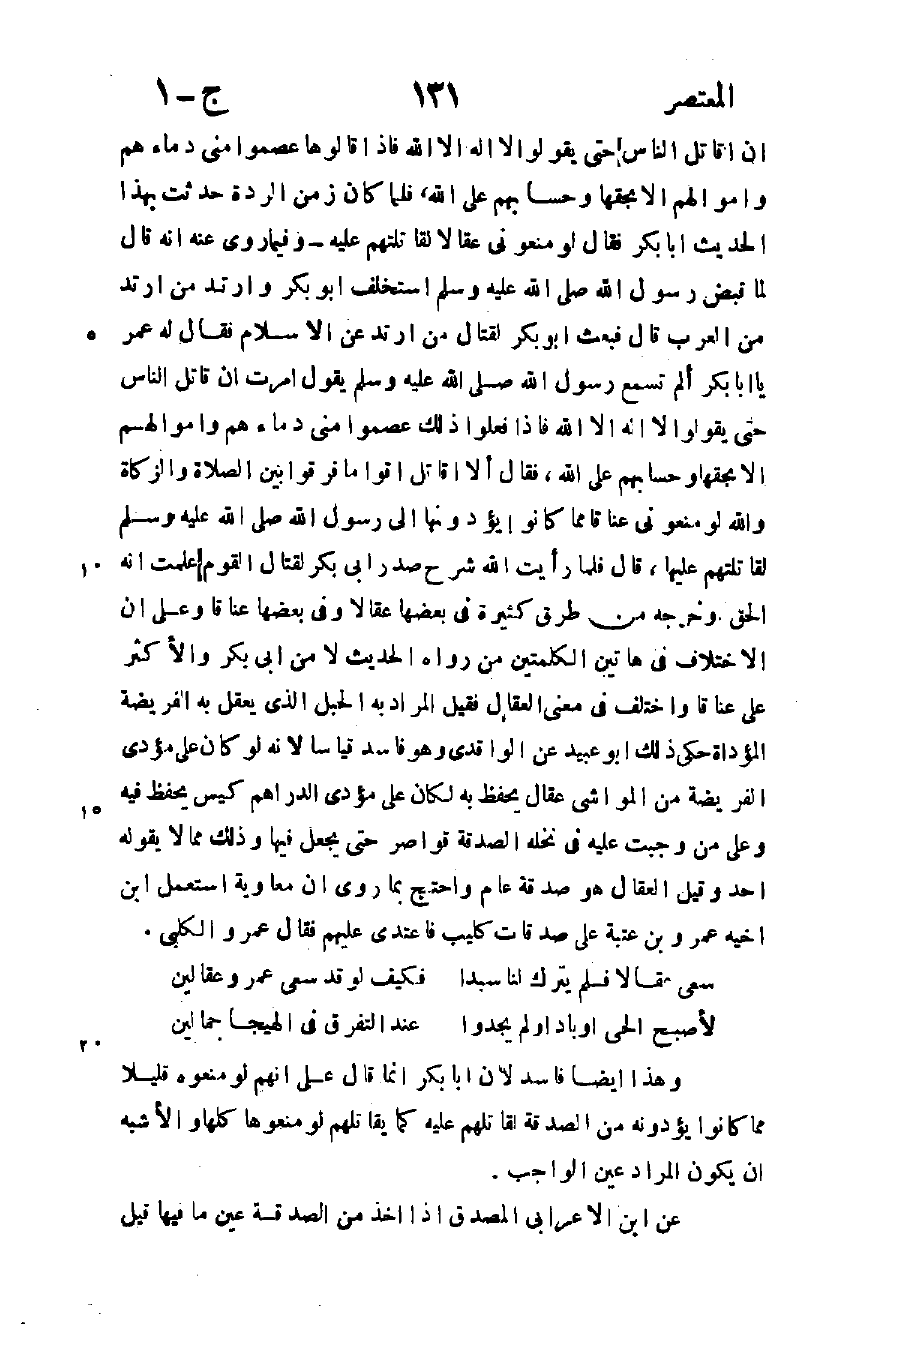 المعتصر ١٣١ ج-١
ان اقاتل الناس حتى يقولوا لا اله الا الله فاذا قالوها عصموا منى دماءهم
واموالهم الا بحقها وحسابهم على الله، فلما كان زمن الردة حدثت بهذا
الحديث ابا بكر فقال لو منعونى عقالا لقاتلتهم عليه - وفيما روى عنه انه قال
لما قبض رسول الله صلى الله عليه وسلم استخلف ابو بكر وارتد من ارتد
من العرب قال فبعث ابو بكر لقتال من ارتد عن الاسلام فقال له عمر ٥
يا ابا بكر ألم تسمع رسول الله صلى الله عليه وسلم يقول امرت ان قاتل الناس
حتى يقولوا لا اله الا الله فاذا فعلوا ذلك عصموا منى دماءهم واموالهم
الا بحقها وحسابهم على الله، فقال ألا اقاتل اقواما فرقوا بين الصلاة والزكاة
والله لو منعونى عناقا مما كانوا يؤدونها الى رسول الله صلى الله عليه وسلم
لقاتلتهم عليها، قال فلما رأيت الله شرح صدر ابى بكر لقتال القوم علمت انه ١٠
الحق. وخرجه من طرق كثيرة فى بعضها عقالا وفى بعضها عناقا وعلى ان
الاختلاف فى هاتين الكلمتين من رواه الحديث لا من ابى بكر والأكثر
على عناقا واختلف فى معنى العقال فقيل المراد به الحبل الذى يعقل به الفريضة
المؤداة حكى ذلك ابو عبيد عن الواقدى وهو فاسد قياسا لانه لو كان على مؤدى
الفريضة من المواشى عقال يحفظ به لكان على مؤدى الدراهم كيس يحفظ فيه ١٥
وعلى من وجبت عليه فى نخله الصدقة قواصر حتى يجعل فيها وذلك مما لا يقوله
احد وقيل العقال هو صدقة عام واحتج بما روى ان معاوية استعمل ابن
اخيه عمرو بن عتبة على صدقات كليب فاعتدى عليهم فقال عمرو الكلبى.
سعى عقالا فلم يترك لنا سبدا فكيف لو قد سعى عمرو عقالين
لأصبح الحى اوبادا ولم يجدوا عند التفرق فى الهيجا جمالين
٢٠
وهذا ايضا فاسد لان ابا بكر انما قال على انهم لو منعوه قليلا
مما كانوا يؤدونه من الصدقة لقاتلهم عليه كما يقاتلهم لو منعوها كلها والأشبه
ان يكون المراد عين الواجب.
عن ابن الاعرابى المصدق اذا اخذ من الصدقة عين ما فيها قيل